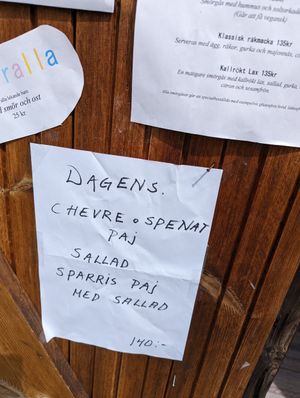 Smörgås med hummus och
(Går att få vegansk)
Klassisk räkmacka 135kr
Serveras med ägg, räkor, gurka och majonnäs,
Kallrökt Lax 135kr
En mangare smörgås med kallrökt lax, sallad, gurka,
citron och
ralla
smör och ost
25 kr
DAGENS.
CHEVRE o SPENAT
PAJ
SALLAD
SPARRIS PAJ
MED SALLAD
140:-